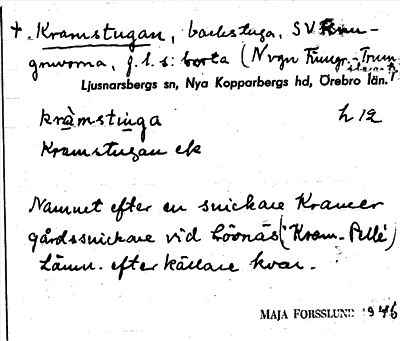 +. Kramstugan, backstuga, SV
gruvorna, f. l. s: borta (N vgn Finngr.-
Ljusnarsbergs sn, Nya Kopparbergs hd, Örebro län.
kràmstuga h 12
Kramstugan ek
Namnet efter en snickare Kramer
gårdssnickare vid Löönäs ("Kram-Pelle")
Lämn. efter källare kvar.
MAJA FORSSLUND 1946